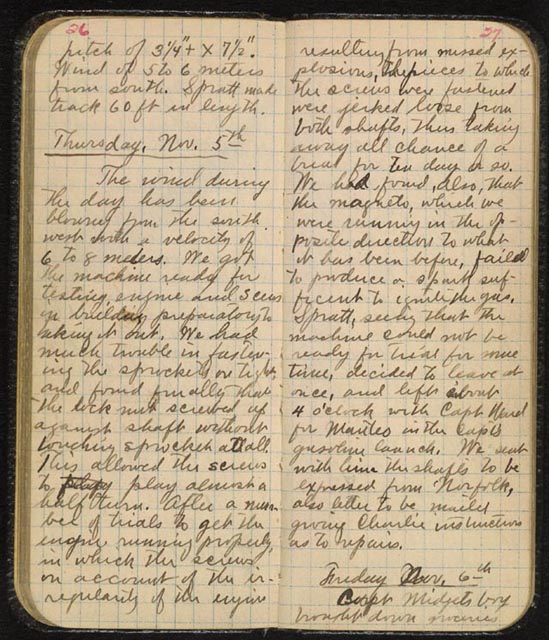 26
pitch of 3¼"+ X 7½".
Wind of 5 to 6 meters
from south. Spratt made
track 60 ft in length.
Thursday, Nov. 5th
The wind during
the day has been
blowing from the south
west with a velocity of
6 to 8 meters. We got
the machine ready for
testing engine and screws
in building, preparatory to
taking it out. We had
much trouble in fasten-
ing the sprockets on tight
and found finally that
the lock nut screwed up
against shaft without
touching sprocket at all.
This allowed the screws
to play almost a
half turn. After a num-
ber of trials to get the
engine running properly,
in which the screws
on account of the ir-
regularity of the engine
27
resulting from missed ex-
plosions, the pieces to which
the screws were fastened
were jerked loose from
both shafts, thus taking
away all chance of a
trial for ten days or so.
We had found, also, that
the magneto, which we
were running in the op-
posite direction to what
it has been before, failed
to produce a spark suf-
ficent to ignite the gas.
Spratt, seeing that the
machine could not be
ready for trial for some
time, decided to leave at
once, and left about
4 o'clock with Capt Ward
for Manteo in the Capts
gasoline launch. We sent
with him the shafts to be
expressed from Norfolk,
also letter to be mailed
giving Charlie instructions
as to repairs.
Friday Nov. 6th
Capt Midgets boy
brought down groceries